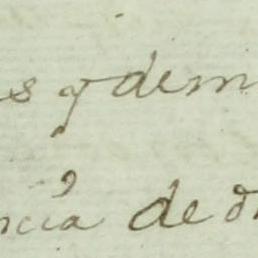 s y dem
ncia de d